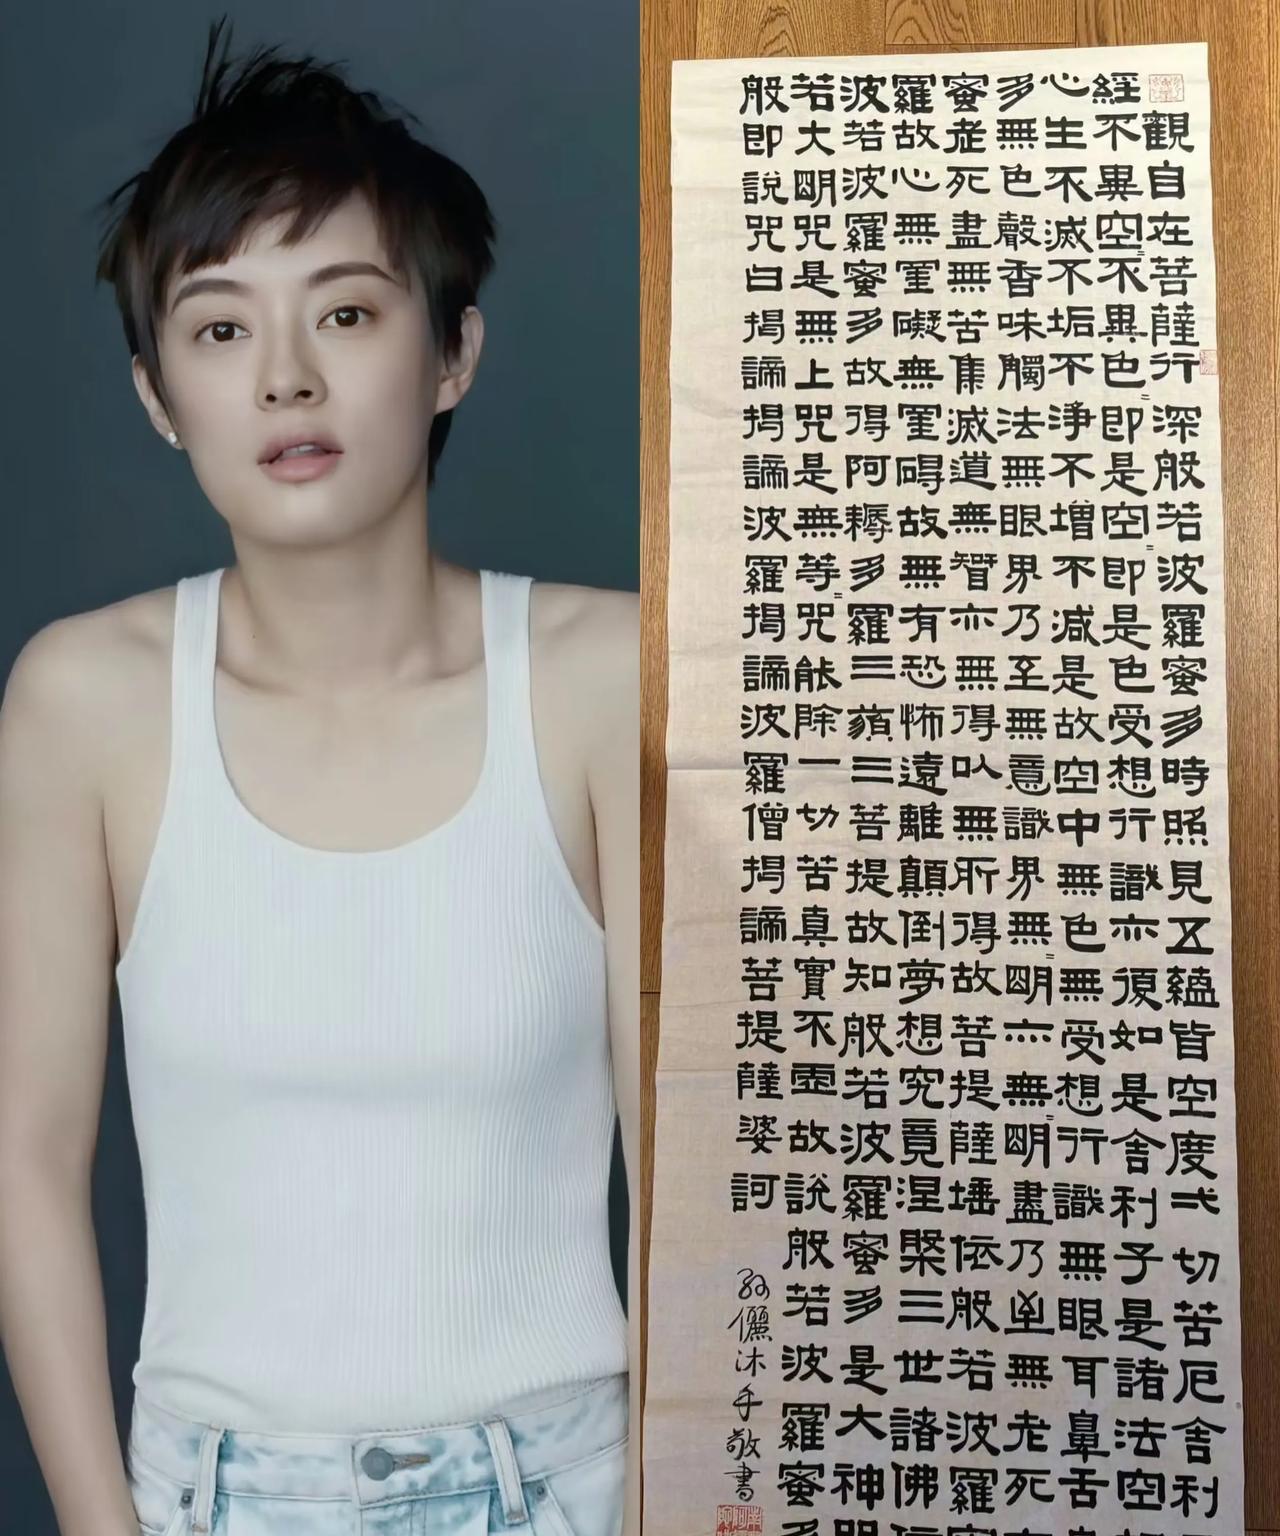 般若波羅蜜多心經
觀自在菩薩行深般若波羅蜜多時照見五蘊皆空度弌切苦厄舍利
不異空=不異色=即是空=即是色受想行識亦復如是舍利子是諸法空
生不滅不垢不淨不增不減是故空中無色無受想行識無眼耳鼻舌
無色聲香味觸法無眼界乃至無意識界無=明亦無=明盡乃至無老死
老死盡無苦集滅道無智亦無得以無所得故菩提薩埵依般若波羅
故心無罣礙無罣碍故無有恐怖遠離顛倒夢想究竟涅槃三世諸佛依
若波羅蜜多故得阿耨多羅三藐三菩提故知般若波羅蜜多是大神咒
大明咒是無上咒是無等=咒能除一切苦真實不虛故說般若波羅蜜多
即說咒曰揭諦揭諦波羅揭諦波羅僧揭諦菩提薩婆訶
孫儷沐手敬書